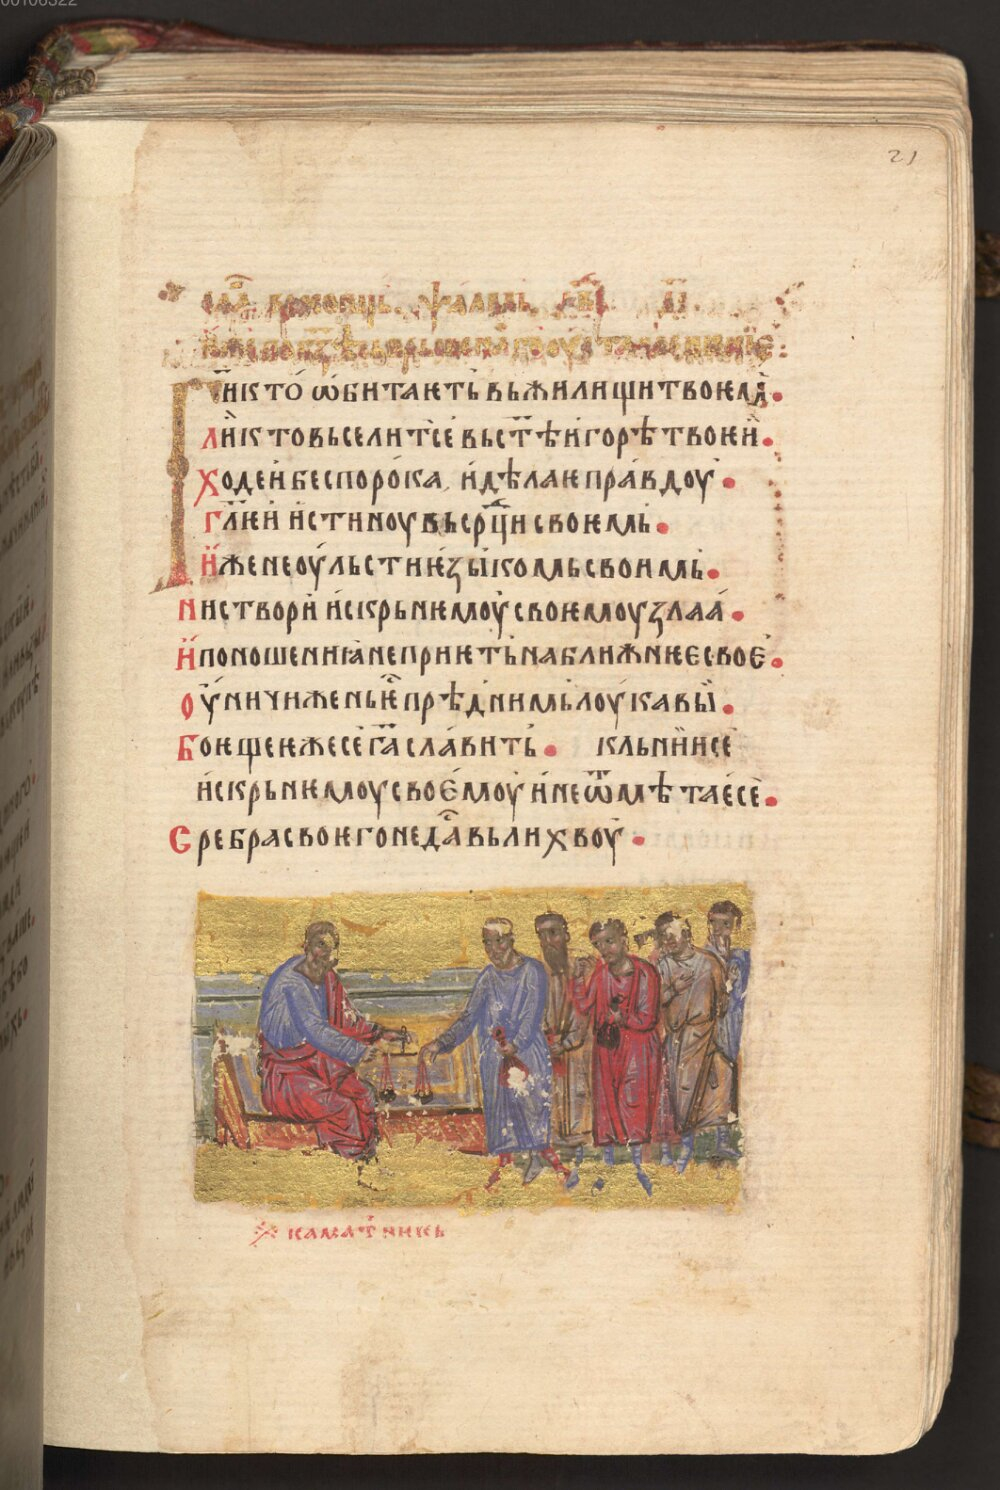 00106322
21
ѱаломь. ді.
Г҃и кто ѡбитаѥть вь жилищи твоѥмь.
Ли кто вьселит се вь ст҃ѣи горѣ твоѥи.
Ходеи бес порока, и дѣлаѥ правдоу.
Гл҃ѥи истиноу вь срⷣци своѥмь.
Иже не оульсти ѥзыкомь своимь.
Ни створи искрьнѥмоу своѥмоу зла а
И поношениꙗ не приѥть на ближнѥе свое.
Оуничижень ѥⷭ прѣд нимь лоукавыи.
Боѥщеѥ же се г҃а славить. кльниисе
искрьнѥмоу своемоу и не ѿмѣтаѥ се.
Сребра своѥго не дасⷭ вь лихвоу.
каматникь